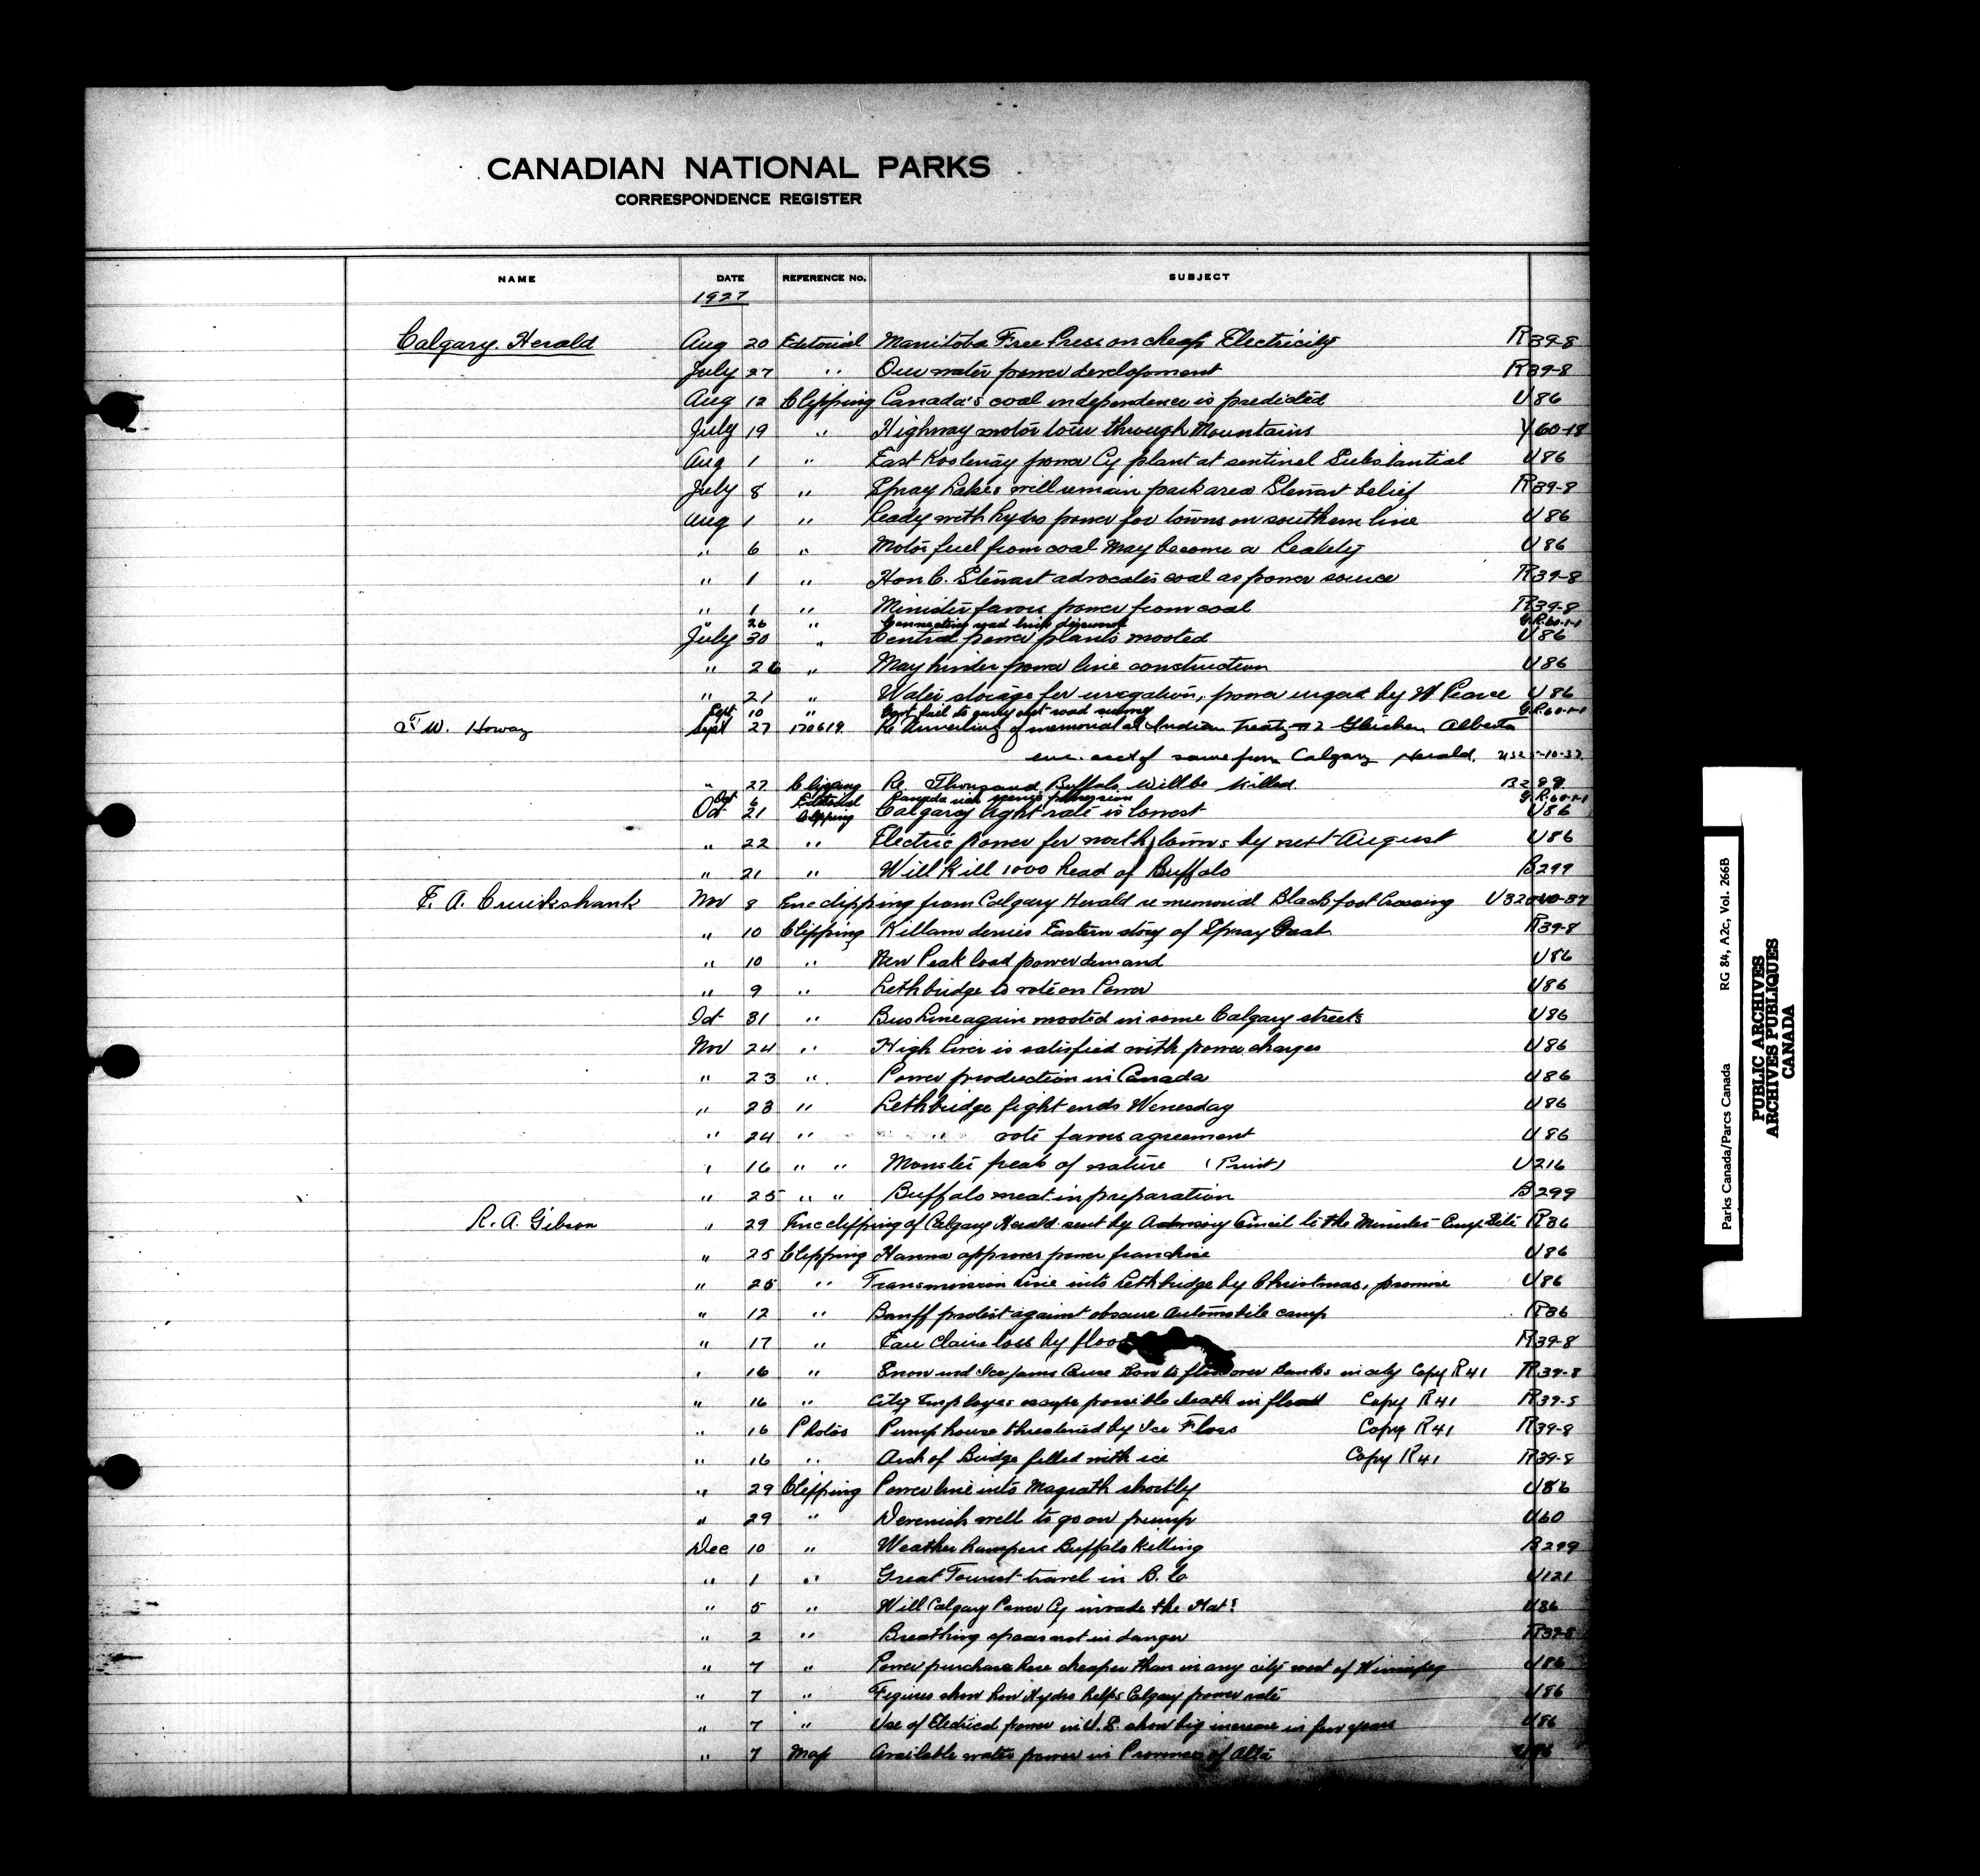 CANADIAN NATIONAL PARKS
CORRESPONDENCE REGISTER
NAME DATE REFERENCE No. SUBJECT
1927
Calgary Herald Aug 20 Editorial Manitoba Free Press on cheap Electricity R39-8
July 27 " Our water power development R39-8
Aug 12 Clipping Canada's coal independence is predicted U86
July 19 " Highway motor tour through Mountains Y60-18
Aug 1 " East Kootenay power Cy plant at sentinel Substantial U86
July 8 " Spray Lakes will remain park area Stewart belief R39-8
Aug 1 " Ready with hydro power for towns on southern line U86
" 6 " Motor fuel from coal May become a Reality U86
" 1 " Hon C. Stewart advocates coal as power source R39-8
" 1 " Minister favors power from coal R39-8
" 26 " Connecting road link G.R.60-1-1
July 30 " Central power plants mooted U86
" 26 " May hinder power line construction U86
" 21 " Water storage for irrigation, power urged by W Pearce U86
Sept 10 " Govt fail to carry out road survey G.R.60-1-1
F W. Howay Sept 27 170619 Re Unveiling of memorial at Indian Treaty #7 Gleichen Alberta
enc. acct of same from Calgary Herald. U325-10-37
" 27 Clipping Re Thousand Buffalo will be killed. B299
Oct 6 Editorial Canada G.R.60-1-1
Oct 21 Clipping Calgary light rate is lowest U86
" 22 " Electric power for north towns by next August U86
" 21 " Will Kill 1000 head of Buffalo B299
F. A. Cruikshank Nov 8 Enc clipping from Calgary Herald re memorial Blackfoot Crossing U32040-37
" 10 Clipping Killam denies Eastern story of Spray R39-8
" 10 " New Peak load power demand U86
" 9 " Lethbridge to vote on Power U86
Oct 31 " Bus Line again mooted in some Calgary streets U86
Nov 24 " High River is satisfied with power charges U86
" 23 " Power production in Canada U86
" 23 " Lethbridge fight ends Wenesday U86
" 24 " " vote favors agreement U86
" 16 " " Monster freak of nature (Print) U216
" 25 " " Buffalo meat in preparation B299
R. A. Gibson " 29 Enc clipping of Calgary Herald sent by Advisory Council to the Minister Camp Site R36
" 25 Clipping Hanna approves power franchise U86
" 25 " Transmission Line into Lethbridge by Christmas, promise U86
" 12 " Banff protest against obscure Automobile camp R36
" 17 " Eau Claire loss by flood R39-8
" 16 " Snow and Ice jams Cause Bow to flood over banks in city Copy R41 R39-8
" 16 " City Employes escape possible death in flood Copy R41 R39-8
" 16 Photos Pump house threatened by Ice Floes Copy R41 R39-8
" 16 " Arch of Bridge filled with ice Copy R41 R39-8
" 29 Clipping Power line into Magrath shortly U86
" 29 " Devenish well to go on pump U60
Dec 10 " Weather hampers Buffalo killing B299
" 1 " Great Tourist travel in B. C. U121
" 5 " Will Calgary Power Cy invade the Hat? U86
" 2 " Breathing spaces not in danger R39-8
" 7 " Power purchase here cheaper than in any city west of Winnipeg U86
" 7 " Figures show how Hydro helps Calgary power rate U86
" 7 " Use of Electrical power in U.S. show big increase in few years U86
" 7 Map Available water power in Province of Alta U86
Parks Canada/Parcs Canada RG 84, A2c, Vol. 266B
PUBLIC ARCHIVES
ARCHIVES PUBLIQUES
CANADA